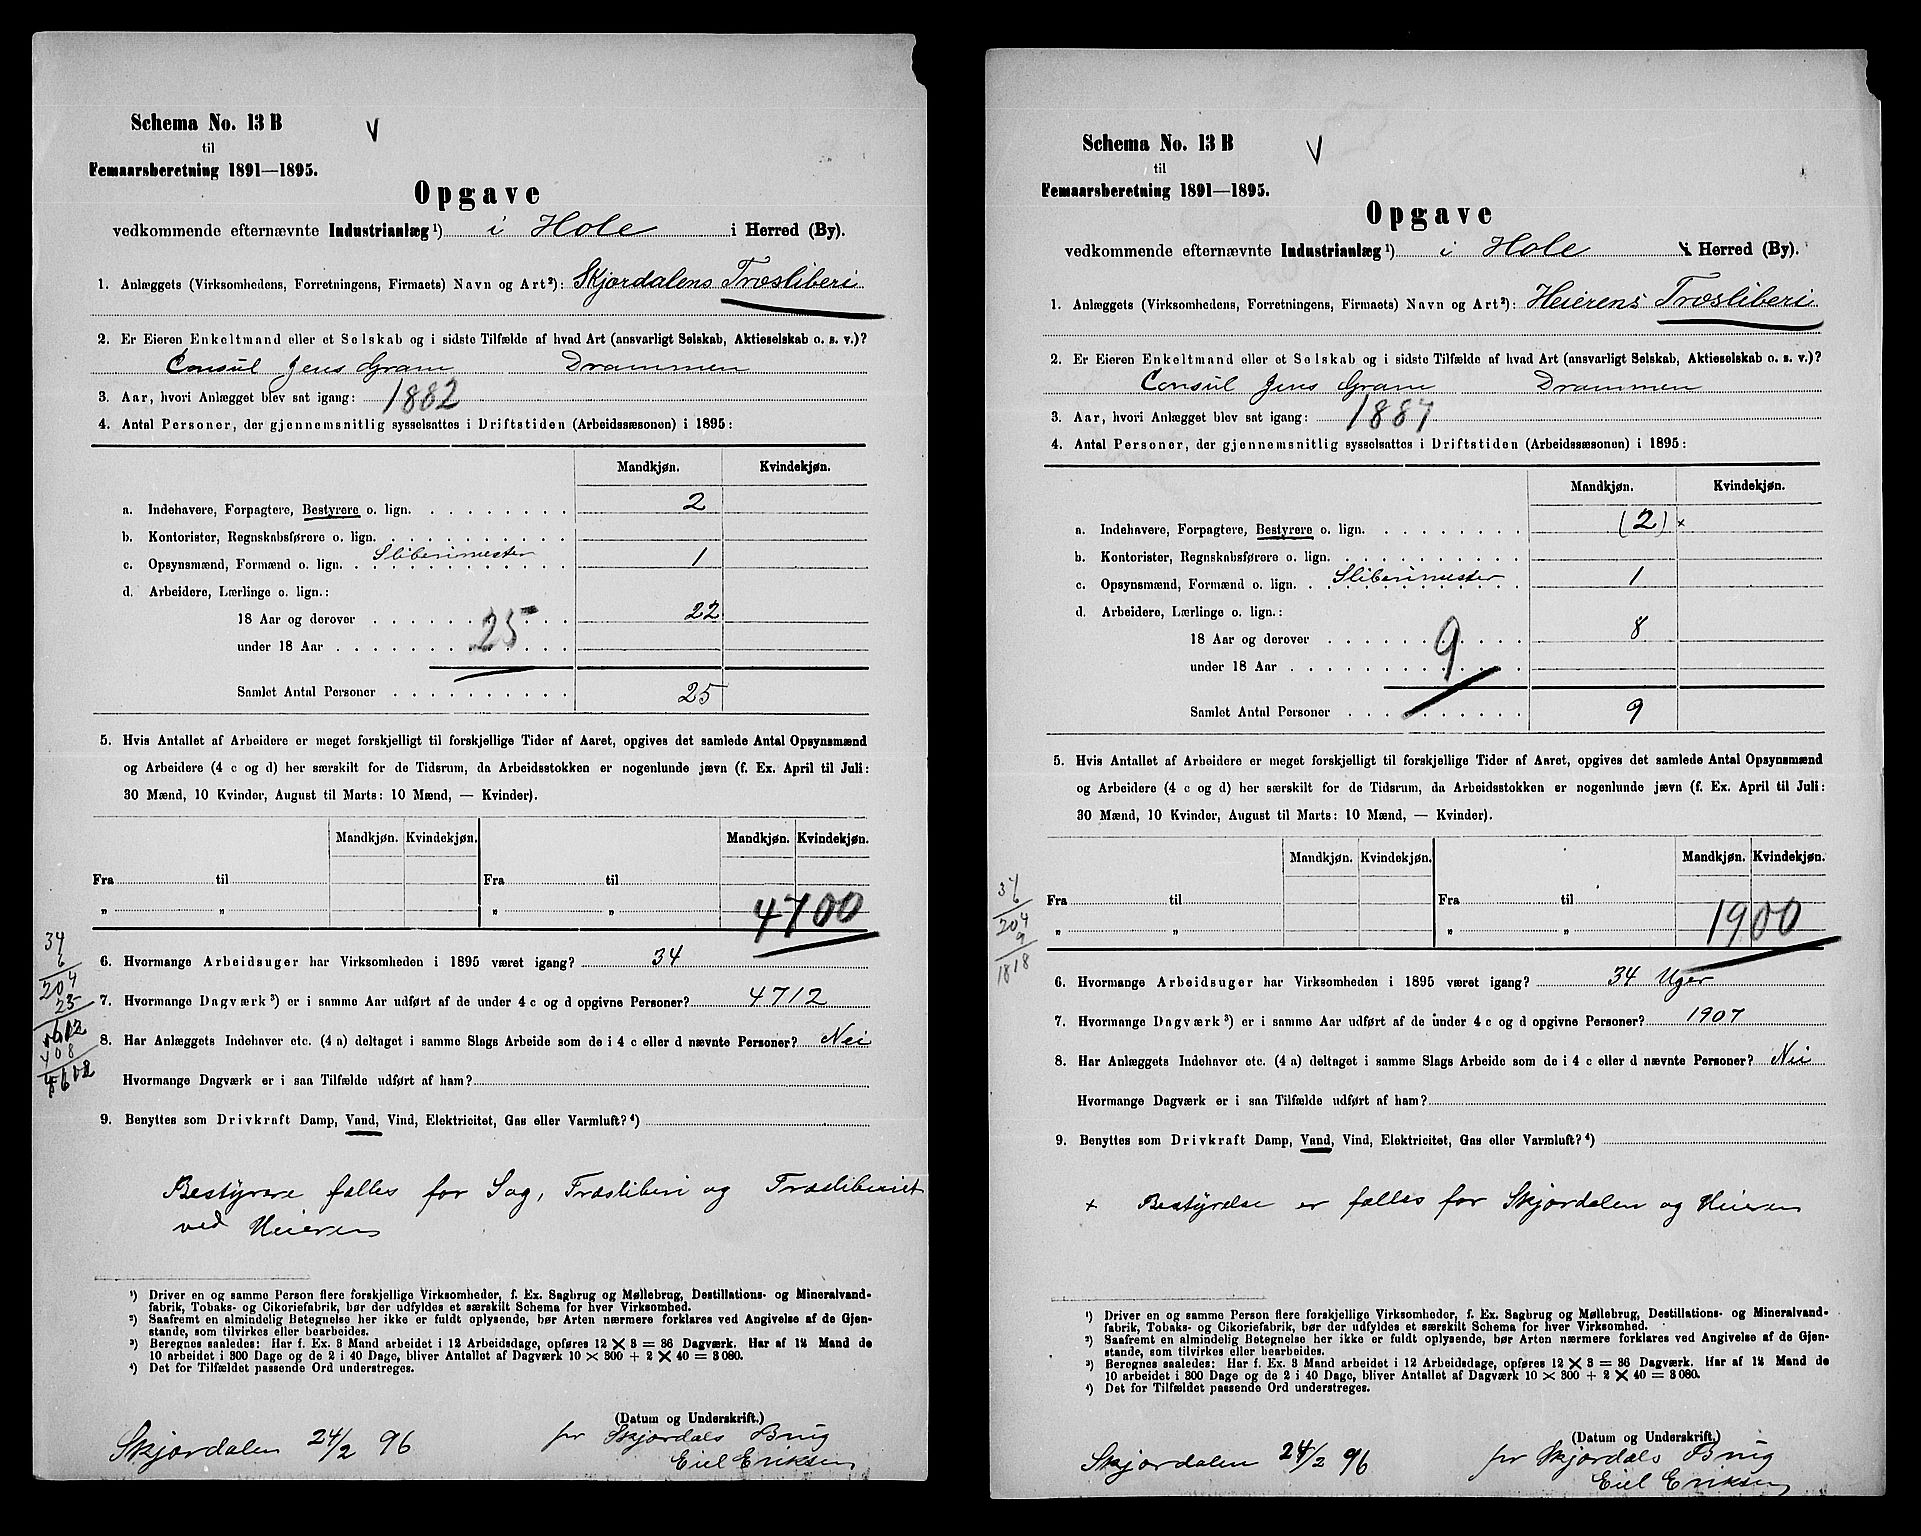 Schema No. 13 B
V
til
Femaarsberetning 1891—1895.
Opgave
vedkommende efternævnte Industrianlæg¹) i Hole i Herred (By).
1. Anlæggets (Virksomhedens, Forretningens, Firmaets) Navn og Art²): Skjørdalens Træsliberi
2. Er Eieren Enkeltmand eller et Selskab og i sidste Tilfælde af hvad Art (ansvarligt Selskab, Aktieselskab o. s. v.)?
Consul Jens Gram Drammen
3. Aar, hvori Anlægget blev sat igang: 1882
4. Antal Personer, der gjennemsnitlig sysselsattes i Driftstiden (Arbeidssæsonen) i 1895:
Mandkjøn. Kvindekjøn.
a. Indehavere, Forpagtere, Bestyrere o. lign. 2
b. Kontorister, Regnskabsførere o. lign.
c. Opsynsmænd, Formænd o. lign. Sliberimester 1
d. Arbeidere, Lærlinge o. lign.:
18 Aar og derover 22
under 18 Aar 25
Samlet Antal Personer 25
5. Hvis Antallet af Arbeidere er meget forskjelligt til forskjellige Tider af Aaret, opgives det samlede Antal Opsynsmænd
og Arbeidere (4 c og d) her særskilt for de Tidsrum, da Arbeidsstokken er nogenlunde jævn (f. Ex. April til Juli:
30 Mænd, 10 Kvinder, August til Marts: 10 Mænd, — Kvinder).
Mandkjøn. Kvindekjøn. Mandkjøn. Kvindekjøn.
Fra til Fra til
„ „ „ „ 4700
34
6
204
25
408
6. Hvormange Arbeidsuger har Virksomheden i 1895 været igang? 34
7. Hvormange Dagværk³) er i samme Aar udført af de under 4 c og d opgivne Personer? 4712
8. Har Anlæggets Indehaver etc. (4 a) deltaget i samme Slags Arbeide som de i 4 c eller d nævnte Personer? Nei
Hvormange Dagværk er i saa Tilfælde udført af ham?
9. Benyttes som Drivkraft Damp, Vand, Vind, Elektricitet, Gas eller Varmluft?⁴)
Bestyrere fælles for Sag, Træsliberi og Træsliberiet
ved Heieren
¹) Driver en og samme Person flere forskjellige Virksomheder, f. Ex. Sagbrug og Møllebrug, Destillations- og Mineralvand-
fabrik, Tobaks- og Cikoriefabrik, bør der udfyldes et særskilt Schema for hver Virksomhed.
²) Saafremt en almindelig Betegnelse her ikke er fuldt oplysende, bør Arten nærmere forklares ved Angivelse af de Gjen-
stande, som tilvirkes eller bearbeides.
³) Beregnes saaledes: Har f. Ex. 3 Mand arbeidet i 12 Arbeidsdage, opføres 12 × 3 = 36 Dagværk. Har af 12 Mand de
10 arbeidet i 300 Dage og de 2 i 40 Dage, bliver Antallet af Dagværk 10 × 300 + 2 × 40 = 3080.
⁴) Det for Tilfældet passende Ord understreges.
(Datum og Underskrift.)
Skjørdalen 24/2 96 for Skjørdals Brug
Eriksen
Schema No. 13 B
V
til
Femaarsberetning 1891—1895.
Opgave
vedkommende efternævnte Industrianlæg¹) i Hole i Herred (By).
1. Anlæggets (Virksomhedens, Forretningens, Firmaets) Navn og Art²): Heierens Træsliberi
2. Er Eieren Enkeltmand eller et Selskab og i sidste Tilfælde af hvad Art (ansvarligt Selskab, Aktieselskab o. s. v.)?
Consul Jens Gram Drammen
3. Aar, hvori Anlægget blev sat igang: 1887
4. Antal Personer, der gjennemsnitlig sysselsattes i Driftstiden (Arbeidssæsonen) i 1895:
Mandkjøn. Kvindekjøn.
a. Indehavere, Forpagtere, Bestyrere o. lign. (2) ×
b. Kontorister, Regnskabsførere o. lign.
c. Opsynsmænd, Formænd o. lign. Sliberimester 1
d. Arbeidere, Lærlinge o. lign.:
18 Aar og derover 8
under 18 Aar 9
Samlet Antal Personer 9
5. Hvis Antallet af Arbeidere er meget forskjelligt til forskjellige Tider af Aaret, opgives det samlede Antal Opsynsmænd
og Arbeidere (4 c og d) her særskilt for de Tidsrum, da Arbeidsstokken er nogenlunde jævn (f. Ex. April til Juli:
30 Mænd, 10 Kvinder, August til Marts: 10 Mænd, — Kvinder).
Mandkjøn. Kvindekjøn. Mandkjøn. Kvindekjøn.
Fra til Fra til
„ „ „ „ 1900
204
9
1818
6. Hvormange Arbeidsuger har Virksomheden i 1895 været igang? 34 Uger
7. Hvormange Dagværk³) er i samme Aar udført af de under 4 c og d opgivne Personer? 1907
8. Har Anlæggets Indehaver etc. (4 a) deltaget i samme Slags Arbeide som de i 4 c eller d nævnte Personer? Nei
Hvormange Dagværk er i saa Tilfælde udført af ham?
9. Benyttes som Drivkraft Damp, Vand, Vind, Elektricitet, Gas eller Varmluft?⁴)
× Bestyrelse er fælles for Skjørdalen og Heieren
¹) Driver en og samme Person flere forskjellige Virksomheder, f. Ex. Sagbrug og Møllebrug, Destillations- og Mineralvand-
fabrik, Tobaks- og Cikoriefabrik, bør der udfyldes et særskilt Schema for hver Virksomhed.
²) Saafremt en almindelig Betegnelse her ikke er fuldt oplysende, bør Arten nærmere forklares ved Angivelse af de Gjen-
stande, som tilvirkes eller bearbeides.
³) Beregnes saaledes: Har f. Ex. 3 Mand arbeidet i 12 Arbeidsdage, opføres 12 × 3 = 36 Dagværk. Har af 12 Mand de
10 arbeidet i 300 Dage og de 2 i 40 Dage, bliver Antallet af Dagværk 10 × 300 + 2 × 40 = 3080.
⁴) Det for Tilfældet passende Ord understreges.
(Datum og Underskrift.)
Skjørdalen 24/2 96 for Skjørdals Brug
Eriksen